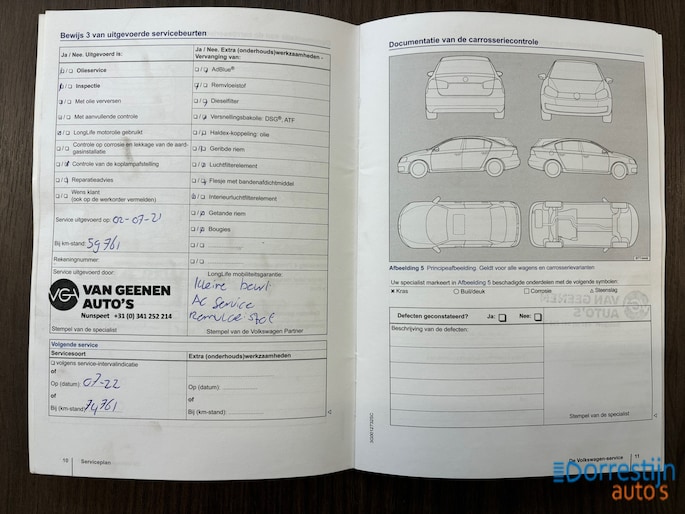 Bewijs 3 van uitgevoerde servicebeurten
Ja / Nee. Uitgevoerd is:
Ja / Nee. Extra (onderhouds)werkzaamheden - Vervanging van:
Olieservice
AdBlue®
Inspectie
Remvloeistof
Met olie verversen
Dieselfilter
Met aanvullende controle
Versnellingsbakolie: DSG®, ATF
LongLife motorolie gebruikt
Haldex-koppeling: olie
Controle op corrosie en lekkage van de aard-
gasinstallatie
Geribde riem
Controle van de koplampafstelling
Luchtfilterelement
Reparatieadvies
Flesje met bandenafdichtmiddel
Wens klant
(ook op de werkorder vermelden)
Interieurluchtfilterelement
Service uitgevoerd op: 02-07-21
Getande riem
Bougies
Bij km-stand: 59761
Rekeningnummer:
Service uitgevoerd door:
LongLife mobiliteitsgarantie:
VGA VAN GEENEN
AUTO'S
Nunspeet +31 (0) 341 252 214
Kleine beurt
AC Service
Stempel van de specialist
Stempel van de Volkswagen Partner
Volgende service
Servicesoort
Extra (onderhouds)werkzaamheden
volgens service-intervalindicatie
of
Op (datum): 07-22
Op (datum):
of
of
Bij (km-stand): 74761
Bij (km-stand):
10 Serviceplan
Documentatie van de carrosseriecontrole
Afbeelding 5 Principeafbeelding. Geldt voor alle wagens en carrosserievarianten.
Uw specialist markeert in Afbeelding 5 beschadigde onderdelen met de volgende symbolen:
× Kras
Buil/deuk
Corrosie
Steenslag
Defecten geconstateerd?
Ja:
Nee:
VAN GEENEN
AUTO'S
Beschrijving van de defecten:
Stempel van de specialist
De Volkswagen-service 11
Dorrestijn
auto's